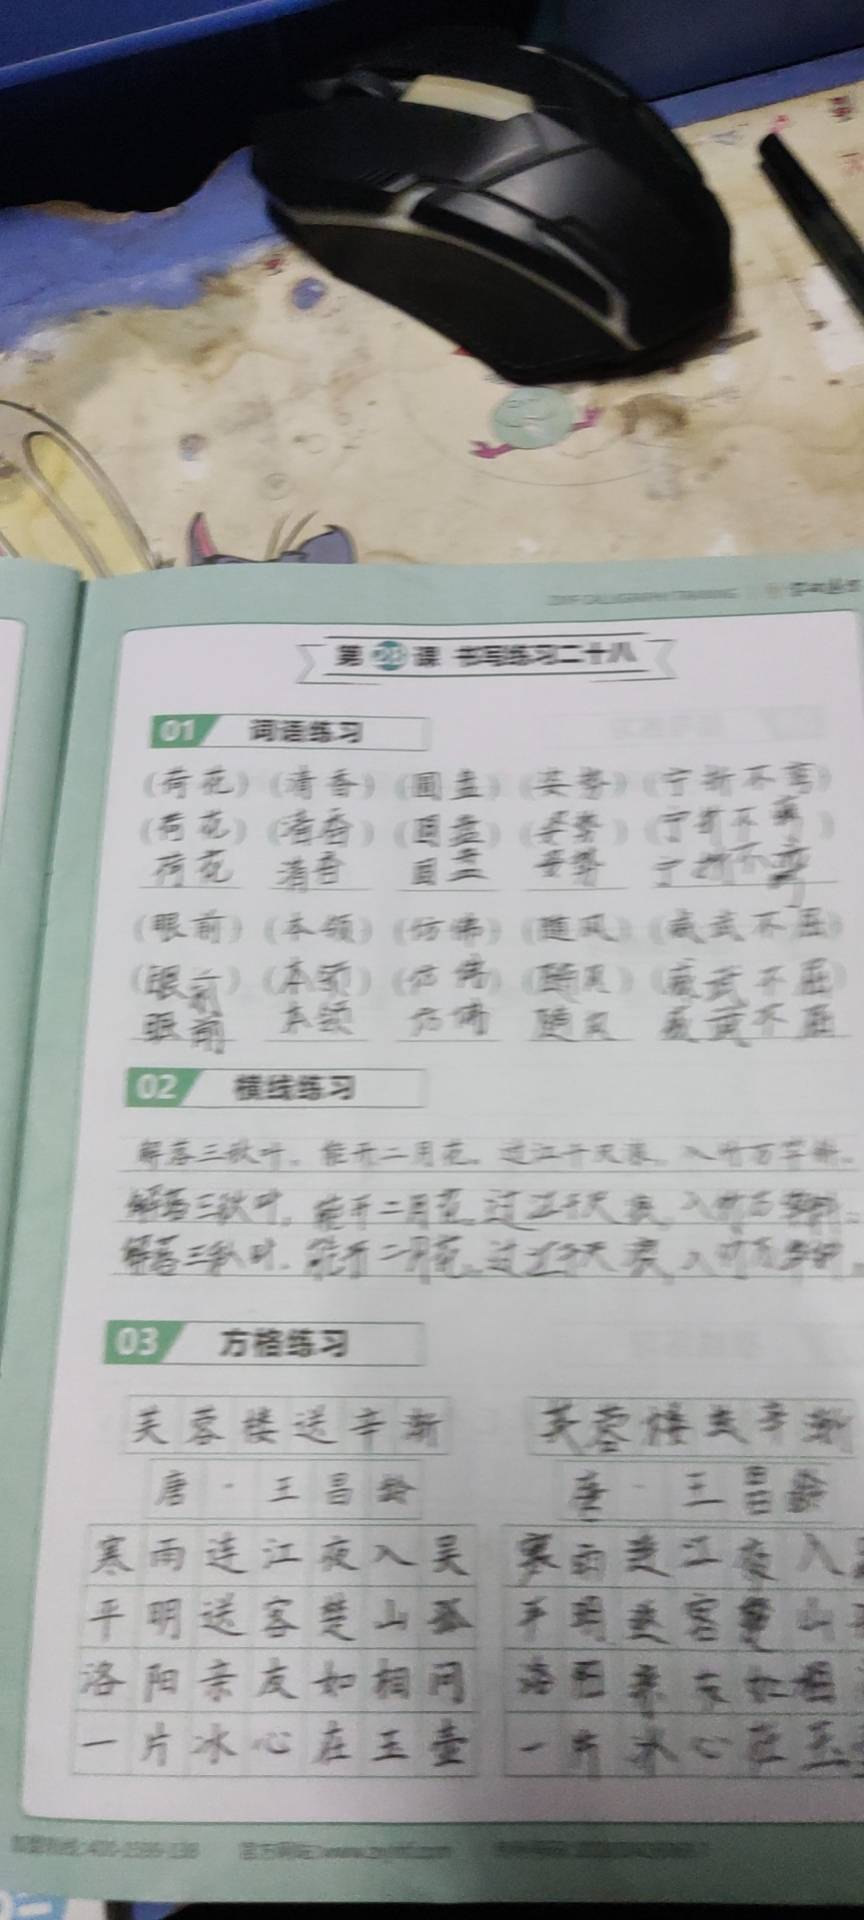 第28课 书写练习二十八
01 词语练习
(荷花) (清香) (圆盘) (姿势) (宁折不弯)
(荷花) (清香) (圆盘) (姿势) (宁折不弯)
荷花 清香 圆盘 姿势 宁折不弯
(眼前) (本领) (仿佛) (随风) (威武不屈)
(眼前) (本领) (仿佛) (随风) (威武不屈)
眼前 本领 仿佛 随风 威武不屈
02 横线练习
解落三秋叶。能开二月花。过江千尺浪。入竹万竿斜。
解落三秋叶。能开二月花。过江千尺浪。入竹万竿斜。
解落三秋叶。能开二月花。过江千尺浪。入竹万竿斜。
03 方格练习
芙蓉楼送辛渐 芙蓉楼送辛渐
唐·王昌龄 唐·王昌龄
寒雨连江夜入吴 寒雨连江夜入
平明送客楚山孤 平明送客楚山
洛阳亲友如相问 洛阳亲友如相
一片冰心在玉壶 一片冰心在玉